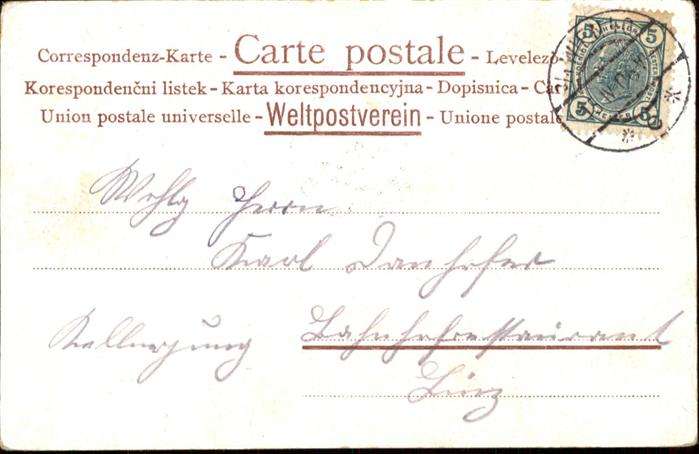 Correspondenz-Karte - Carte postale - Levelezö
Korespondenční listek - Karta korespondencyjna - Dopisnica - Ca
Union postale universelle - Weltpostverein - Unione postale
5 5
5 5
Wohlg Herrn
Karl
Kellnerjung Bahnhofrestaurant
Linz